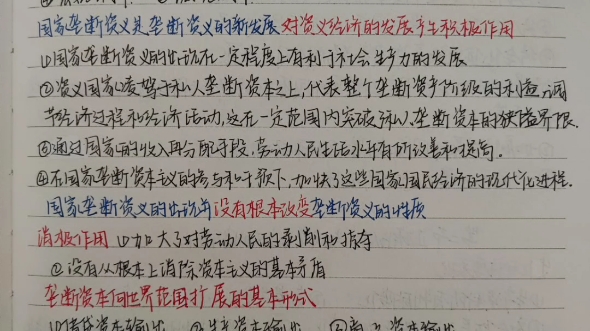 国家垄断资义是垄断资义的新发展 对资义经济的发展产生积极作用
①国家垄断资义的出现在一定程度上有利于社会生产力的发展
②资义国家凌驾于私人垄断资本之上，代表整个垄断资产阶级的利益，调
节经济过程和经济活动，这在一定范围内突破了私人垄断资本的狭隘界限.
③通过国家的收入再分配手段，劳动人民生活水平有所改善和提高.
④在国家垄断资本主义的参与和干预下，加快了这些国家国民经济的现代化进程.
国家垄断资义的出现并没有根本改变垄断资义的性质
消极作用 ①加大了对劳动人民的剥削和掠夺
②没有从根本上消除资本主义的基本矛盾
垄断资本向世界范围扩展的基本形式
①借贷资本输出 ②生产资本输出 ③商品资本输出